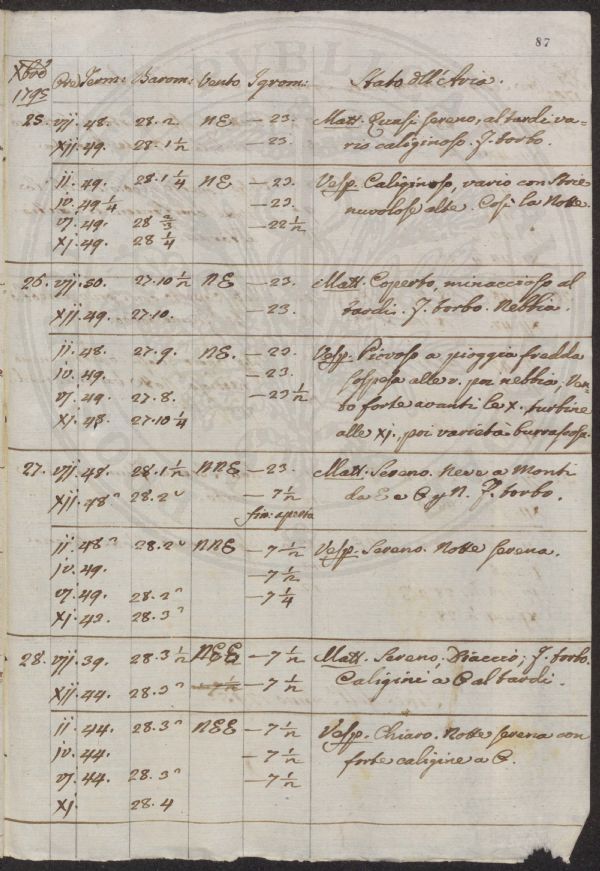 87
Xbre Ore Term: Barom: Vento Igrom: Stato dell'Aria.
1795
25. vij. 48. 28.2 NE — 23. Matt. Quasi sereno, al tardi va-
xij. 49. 28.1 1/2 — 23. rio caliginoso. F. torbo.
ij. 49. 28.1 1/4 NE — 23. Vesp. Caliginoso, vario con Strie
iv. 49 1/4 — 23. nuvolose alte. Così la Notte.
vj. 49. 28 2/3 — 22 1/2
xj. 49. 28 1/4
26. vij. 50. 27.10 1/2 NE — 23. Matt. Coperto, minaccioso al
xij. 49. 27.10. — 23. tardi. F. torbo. Nebbia.
ij. 48. 27.9. NE. — 23. Vesp. Piovoso a pioggia fredda
iv. 49. — 23. sospesa alle v. poi nebbia, Ven-
vj. 49. 27.8. — 23 1/2 to forte avanti le x. turbine
xj. 48. 27.10 1/4 alle xj., poi varietà burrascosa.
27. vij. 48. 28.1 1/2 NNE — 23. Matt. Sereno. Neve a Monti
xij. 48 28.2 — 7 1/2 da E a N. F. torbo.
fin: aperta
ij. 48 28.2 NNE — 7 1/2 Vesp. Sereno. Notte serena.
iv. 49. — 7 1/2
vj. 49. 28.2 — 7 1/4
xj. 42. 28.3
28. vij. 39. 28.3 1/2 NEE — 7 1/2 Matt. Sereno, Diaccio; F. torbo.
xij. 44. 28.3 — 7 1/2 Caligini a al tardi.
ij. 44. 28.3 NEE — 7 1/2 Vesp. Chiaro. Notte serena con
iv. 44. — 7 1/2 forte caligine a
vj. 44. 28.3 — 7 1/2
xj. 28.4